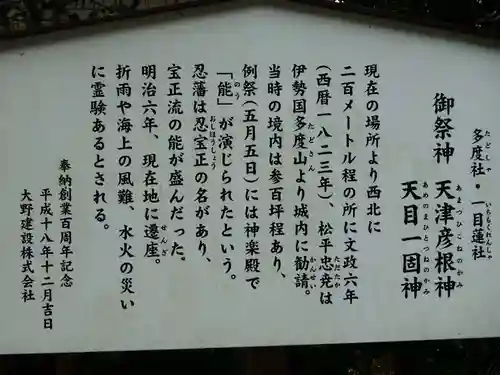 多度社・一目蓮社
たどしゃ いちもくれんしゃ
御祭神 天津彦根神
あまつひこねのかみ
天目一固神
あめのまひとつねのかみ
現在の場所より西北に
二百メートル程の所に文政六年
(西暦一八二三年)、松平忠尭は
ただたか
伊勢国多度山より城内に勧請。
たどさん かんせい
当時の境内は参百坪程あり、
例祭(五月五日)には神楽殿で
「能」が演じられたという。
のう
忍藩は忍宝正の名があり、
おしほうしょう
宝正流の能が盛んだった。
明治六年、現在地に遷座。
せんざ
折雨や海上の風難、水火の災い
に霊験あるとされる。
奉納創業百周年記念
平成十八年十二月吉日
大野建設株式会社